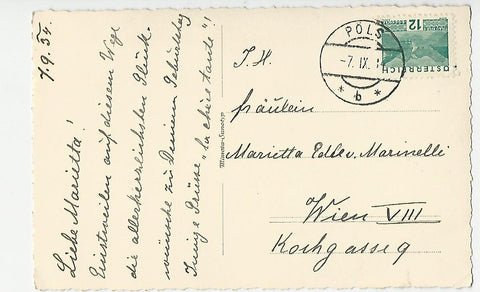 7.9.34.
Liebe Marietta!
Einstweilen auf diesem Wege
die allerherzlichsten Glück-
wünsche zu Deinem Geburtstag
Innige Grüsse „la chère tante"!!
PÖLS
-7. IX.
* b *
12
ÖSTERREICH
I. H.
Fräulein
Marietta Edle v. Marinelli
Wien VIII
Kochgasse 9